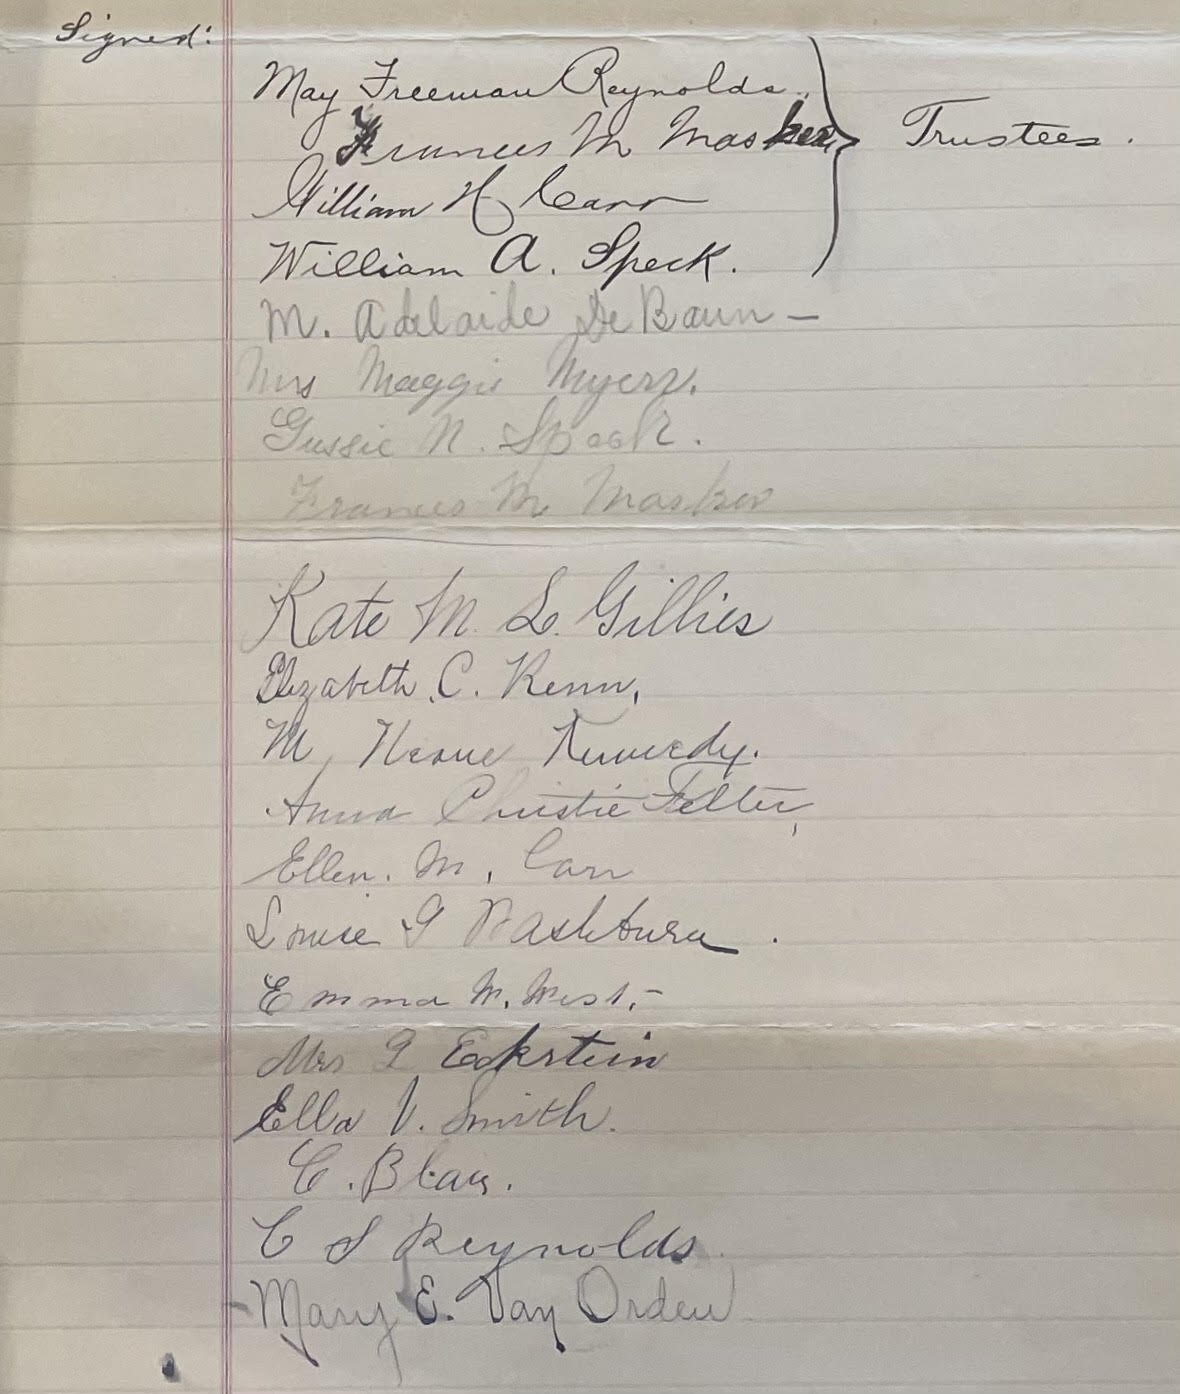 Signed:
May Freeman Reynolds.
Frances M Masker, Trustees.
William H Carr
William A. Speck.
M. Adelaide De Baun —
Mrs Maggie Myers.
Gussie N. Speck.
Frances M Masker
Kate M. L. Gillies
Elizabeth C. Renn,
M, Kennedy.
Anna Christie Felter,
Ellen. M, Carr
Louise G Washburn.
Emma W. West,-
Mrs G Eckstein
Ella V. Smith.
C. Blau.
C S Reynolds.
Mary E. Van Orden